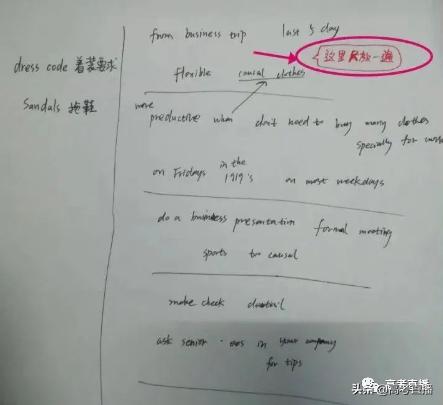 from business trip last 5 day
{这里只放一遍
dress code 着装要求
flexible causal clothes
Sandals 拖鞋
more
productive when don't need to buy many clothes
specially for work
on Fridays in the 1919's on most weekdays
do a business presentation formal meeting
sports too causal
make check
ask senior in your company
for tips
高考直播
头条 @高考直播